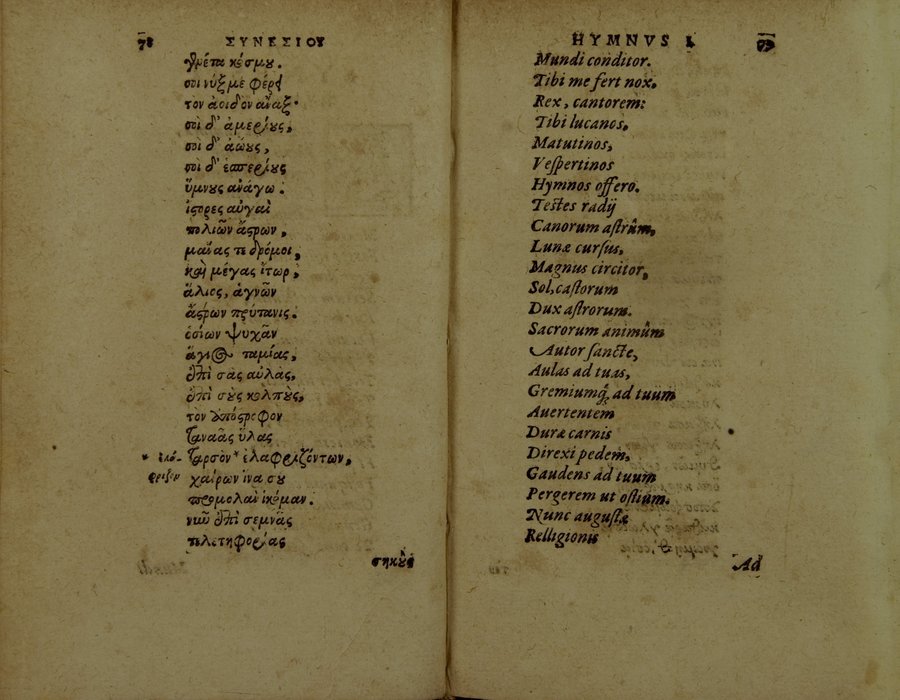 78 ΣΥΝΕΣΙΟΥ
γενέτα κόσμου.
σοὶ νύξ με φέρει
τὸν ἀοιδὸν ἄναξ·
σοὶ δ' ἀμερίους,
σοὶ δ' ἀώους,
σοὶ δ' ἑσπερίους
ὕμνους ἀνάγω.
ἵστορες αὐγαὶ
πολιῶν ἄστρων,
μαίας τε δρόμοι,
καὶ μέγας ἵστωρ,
ἅλιος, ἁγνῶν
ἄστρων πρύτανις.
ὁσίων ψυχᾶν
ἅγιος ταμίας,
ἐπὶ σὰς αὐλὰς,
ἐπὶ σοὺς κόλπους,
τὸν ὑπόστρεφον
ταναᾶς ὕλας
* ταρσὸν* ἐλαφριζόντων,
χαίρων ἵνα σου
προμολαὶ ἱκόμαν.
νιῦ ἐπὶ σεμνὰς
τελετηφορίας
σηκοὺς
HYMNVS I. 79
Mundi conditor.
Tibi me fert nox,
Rex, cantorem:
Tibi lucanos,
Matutinos,
Vespertinos
Hymnos offero.
Testes radij
Canorum astrûm,
Lunæ cursus,
Magnus circitor,
Sol, castorum
Dux astrorum.
Sacrorum animûm
Autor sancte,
Aulas ad tuas,
Gremiumq́; ad tuum
Auertentem
Duræ carnis
Direxi pedem,
Gaudens ad tuum
Pergerem ut ostium.
Nunc augustæ
Relligionis
Ad